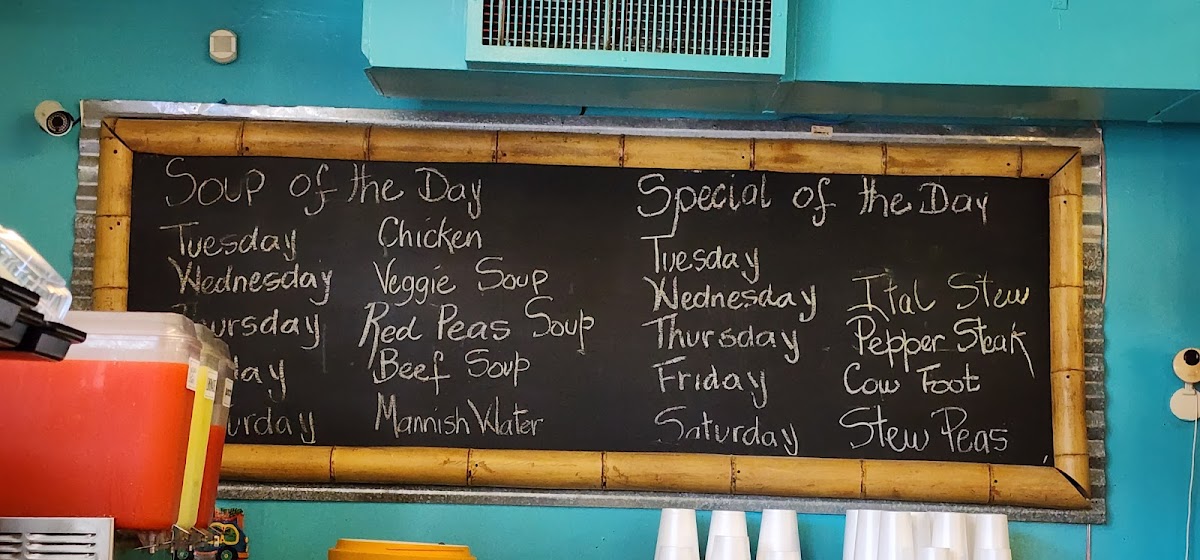 Soup of the Day
Tuesday Chicken
Wednesday Veggie Soup
Thursday Red Peas Soup
day Beef Soup
urday Mannish Water
Special of the Day
Tuesday
Wednesday Ital Stew
Thursday Pepper Steak
Friday Cow Foot
Saturday Stew Peas